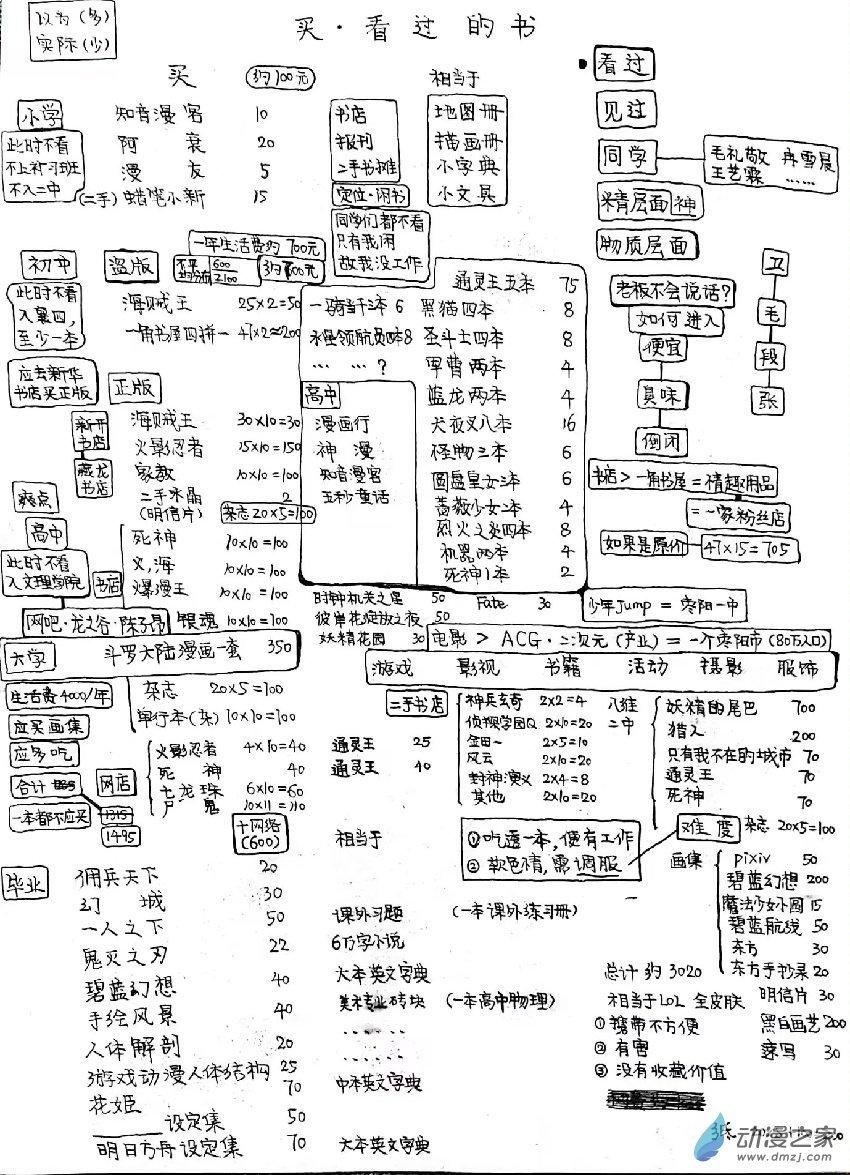 以为（多）
实际（少）
买·看过的书
买 约100元 相当于
小学
知音漫客 10
阿衰 20
漫友 5
(二手)蜡笔小新 15
此时不看
不上补习班
不入二中
书店
报刊
二手书摊
定位·闲书
地图册
描画册
小字典
小文具
同学们都不看
只有我闲
故我没工作
看过
见过
同学
毛礼敬 冉雪晨
王艺霖 ……
精层面神
物质层面
老板不会说话?
如何进入
便宜
臭味
倒闭
卫
毛
段
张
书店>一角书屋=情趣用品
=一家粉丝店
如果是原价 47×15=705
初中 盗版
一年生活费约700元
600
2100
此时不看
入襄四,
至少一本
海贼王 25×2=50
一角书屋四拼一 47×2≈200
应去新华
书店买正版
正版
新开
书店
藏龙
书店
海贼王 30×10=30
火影忍者 15×10=150
家教 10×10=100
二手水晶 2
(明信片)
杂志20×5=100
通灵王五本 75
一骑当千三本 6 黑猫四本 8
永强领航员四本 8 圣斗士四本 8
… … ? 军曹两本 4
蓝龙两本 4
犬夜叉八本 16
怪物三本 6
圆盘皇女三本 6
蔷薇少女二本 4
烈火之炎四本 8
机器两本 4
死神1本 2
高中
漫画行
神漫
知音漫客
五秒童话
爽点
高中
此时不看
入文理学院
书店
死神 10×10=100
火,海 10×10=100
爆漫王 10×10=100
网吧·龙之谷·陈子昂
银魂 10×10=100
时钟机关之星 50 Fate 30
彼岸花绽放之夜 50
妖精花园 30
少年Jump = 枣阳一中
电影 > ACG·二次元(产业)=一个枣阳市(80万人口)
游戏 影视 书籍 活动 摄影 服饰
大学
斗罗大陆漫画一套 350
生活费4000/年
应买画集
应多吃
合计
1315
1495
一本都不应买
杂志 20×5=100
单行本(杂) 10×10=100
网店
火影忍者 4×10=40
死神 40
七龙珠 6×10=60
尸鬼 10×11=110
通灵王 25
通灵王 40
二手书店
神兵玄奇 2×2=4
侦探学园Q 2×10=20
金田一 2×5=10
风云 2×10=20
封神演义 2×4=8
其他 2×10=20
二中
妖精的尾巴 700
猎人 200
只有我不在的城市 70
通灵王 70
死神 70
难度
杂志 20×5=100
①吃透一本,便有工作
②软色情,需调服
十网络
(600)
相当于
毕业
佣兵天下 20
幻城 30
一人之下 50 课外习题 (一本课外练习册)
鬼灭之刃 22 6万字小说
碧蓝幻想 40 大本英文字典
手绘风景 40 美术专业砖块 (一本高中物理)
人体解剖 20
游戏动漫人体结构 25
花姬 70 中本英文字典
设定集 50
明日方舟设定集 70 大本英文字典
画集
pixiv 50
碧蓝幻想 200
魔法少女小圆 15
碧蓝航线 50
东方 30
东方手抄录 20
明信片 30
黑白画艺 200
速写 30
总计约3020
相当于LOL全皮肤
①携带不方便
②有害
③没有收藏价值
动漫之家
www.dmzj.com